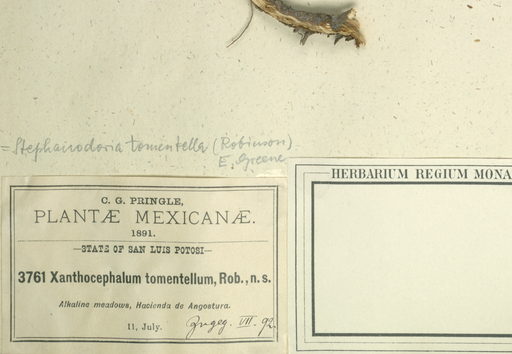 = Stephanodoria tomentella (Robinson)
E. Greene
HERBARIUM REGIUM MONA
C. G. PRINGLE,
PLANTÆ MEXICANÆ.
1891.
—STATE OF SAN LUIS POTOSI—
3761 Xanthocephalum tomentellum, Rob., n. s.
Alkaline meadows, Hacienda de Angostura.
11, July.
Zugeg. VII. 92.